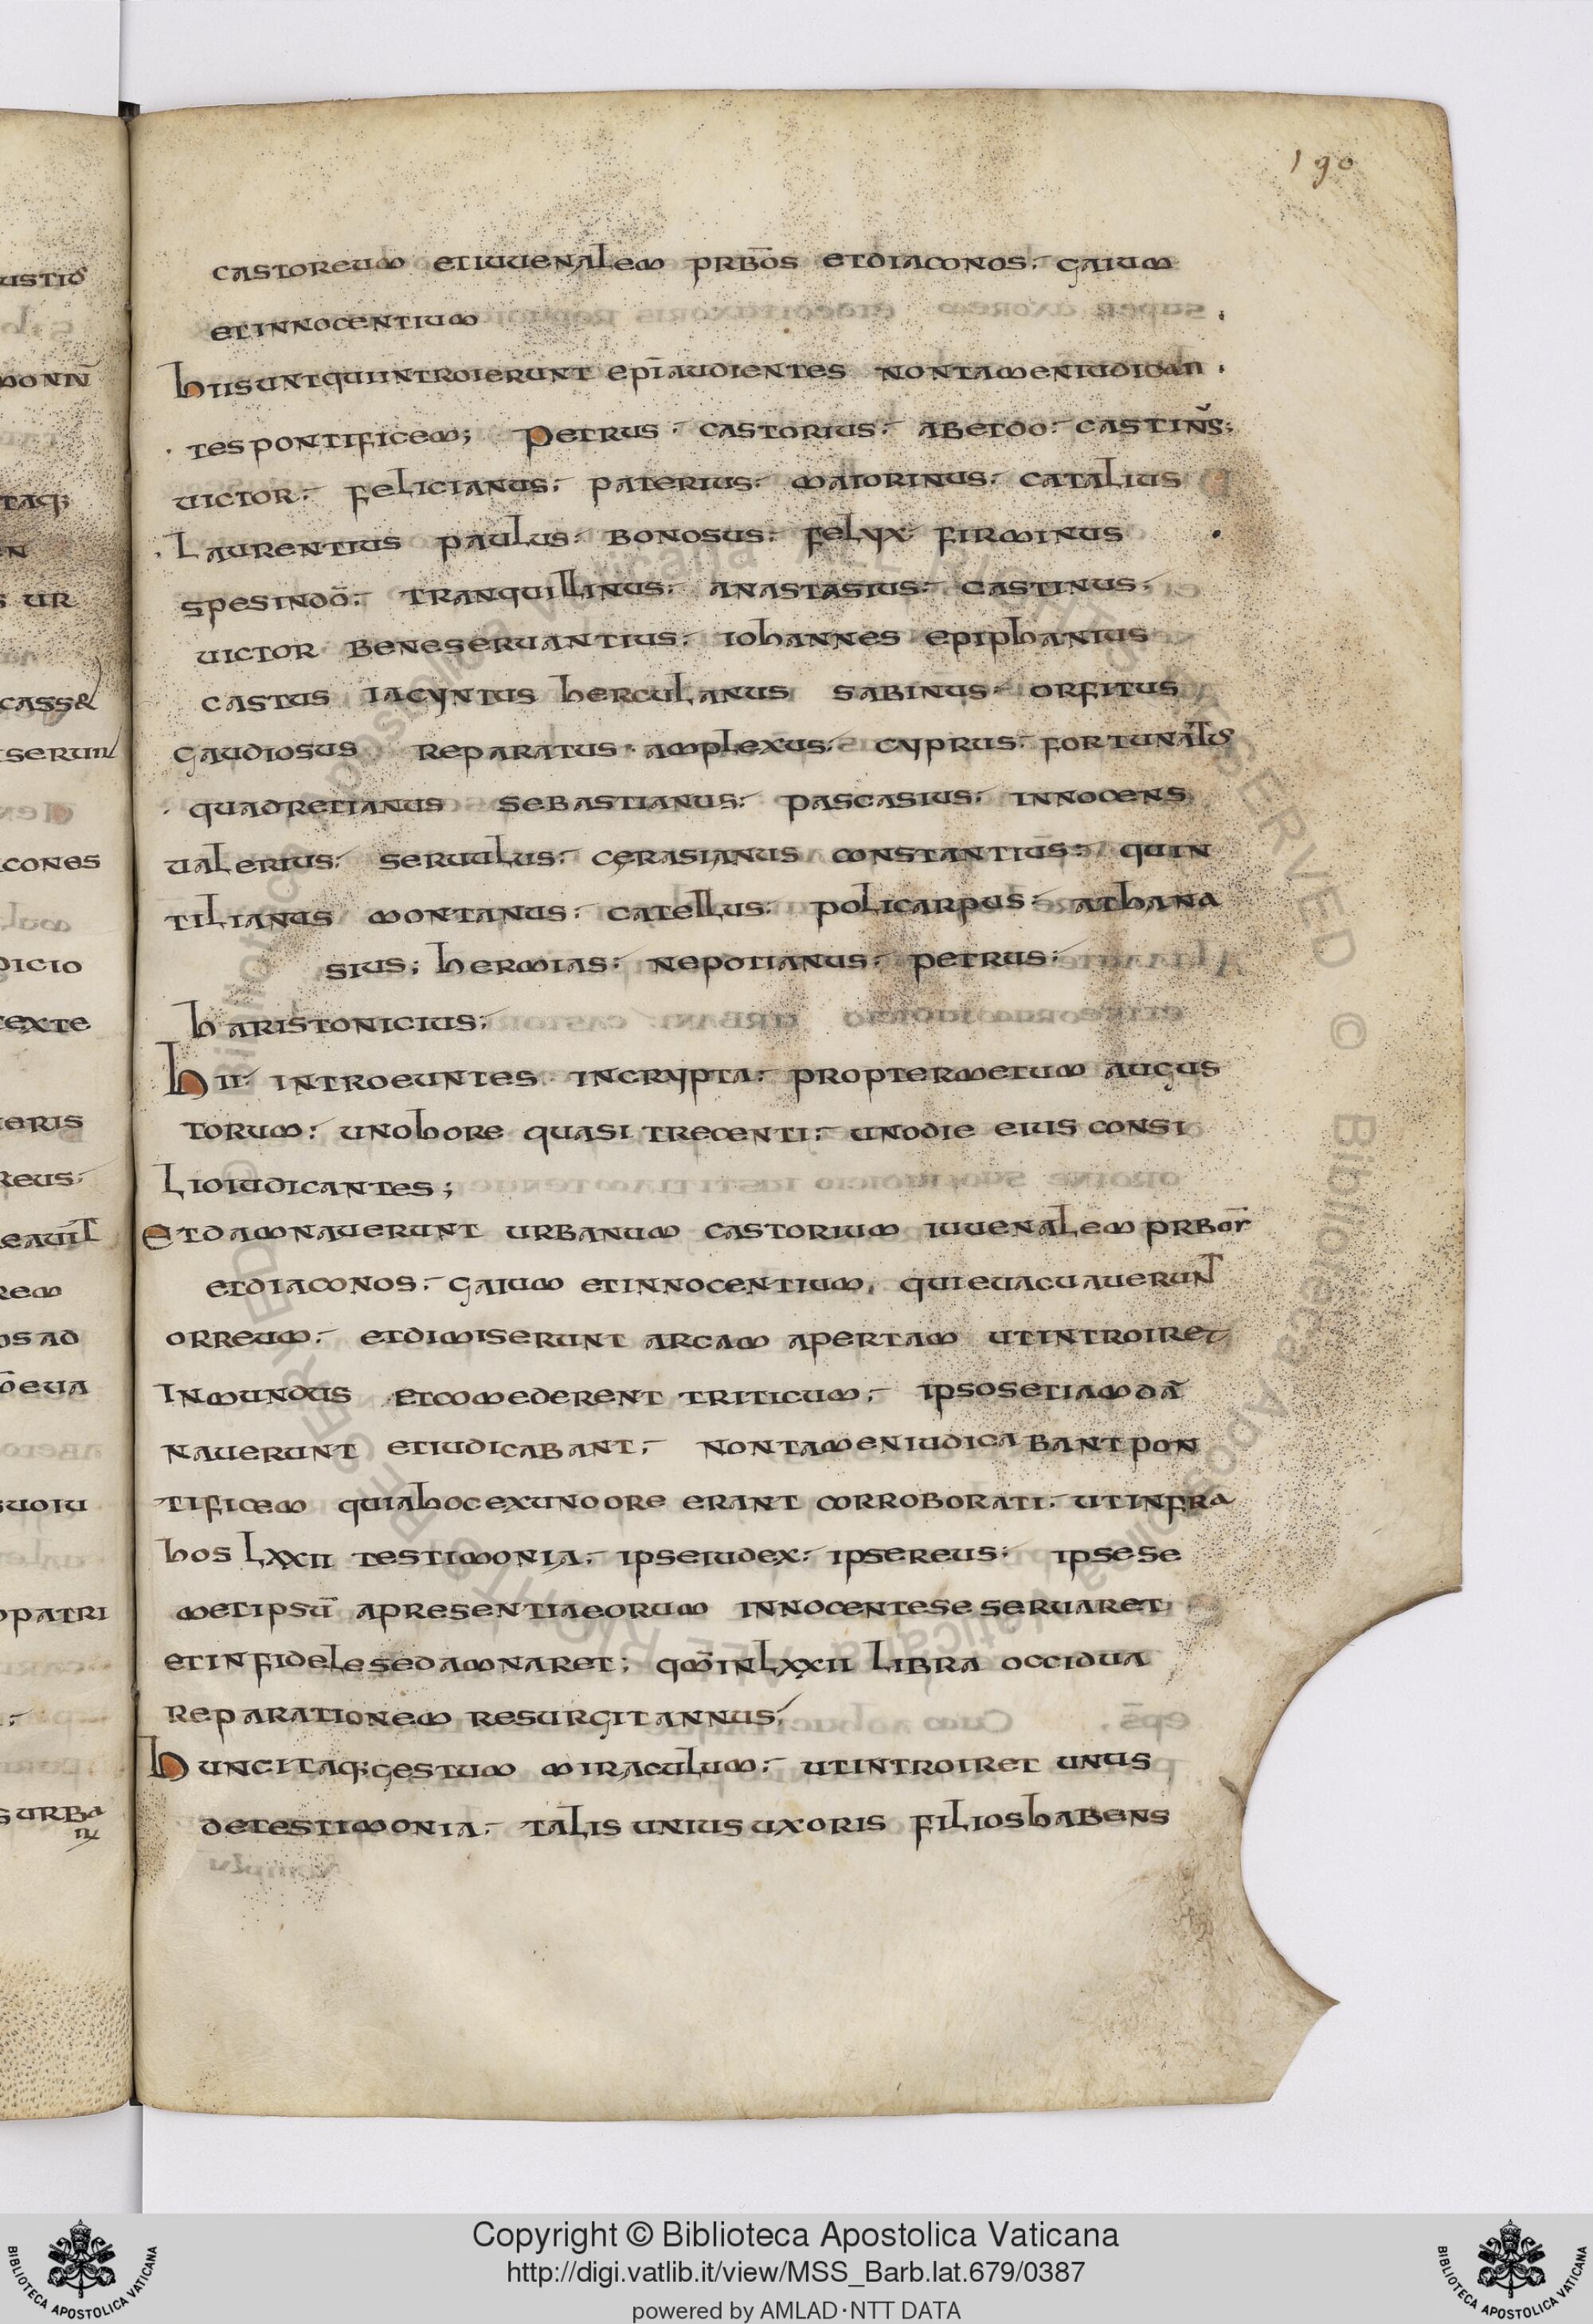 190
castoreum etiuuenalem prb̄os etdiaconos; gaium
etinnocentium
hiisuntquiintroierunt ep̄iaudientes nontameniudican
tespontificem; petrus · castorius; abetdo; castinus;
uictor; felicianus; paterius; maiorinus; catalius
Laurentius paulus; bonosus; felyx; firminus
spesindō; tranquillinus; anastasius; castinus;
uictor beneseruantius; iohannes epiphanius
castus iacyntus herculanus sabinus; orfitus
gaudiosus reparatus · amplexus; cyprus; fortunatus
quadretianus sebastianus; pascasius; innocens
ualerius; seruulus; cerasianus constantius; quin
tilianus montanus; catellus; policarpus; athana
sius; hermias; nepotianus; petrus;
haristonicius;
hii; introeuntes · incrypta; proptermetum augus
torum; unohore quasi trecenti; unodie eius consi
Lioiudicantes;
etdamnauerunt urbanum castorium iuuenalem prb̄or
etdiaconos; gaium etinnocentium, quieuacuauerunt
orreum; etdimiserunt arcam apertam utintroiret
Inmundus etcomederent triticum; ipsosetiamdā
nauerunt etiudicabant; nontameniudicabantpon
tificem quiahocexunoore erant corroborati; utinfra
hos Lxxii testimonia; ipseiudex; ipsereus; ipsese
metipsū apresentiaeorum innocenteseseruaret
etinfidelesedamnaret; qm̄inLxxii Libra occidua
reparationem resurgitannus;
huncitaq;gestum miraculum; utintroiret unus
detestimonia; talis uniusuxoris filioshabens
Copyright © Biblioteca Apostolica Vaticana
http://digi.vatlib.it/view/MSS_Barb.lat.679/0387
powered by AMLAD·NTT DATA
BIBLIOTECA APOSTOLICA VATICANA
BIBLIOTECA APOSTOLICA VATICANA